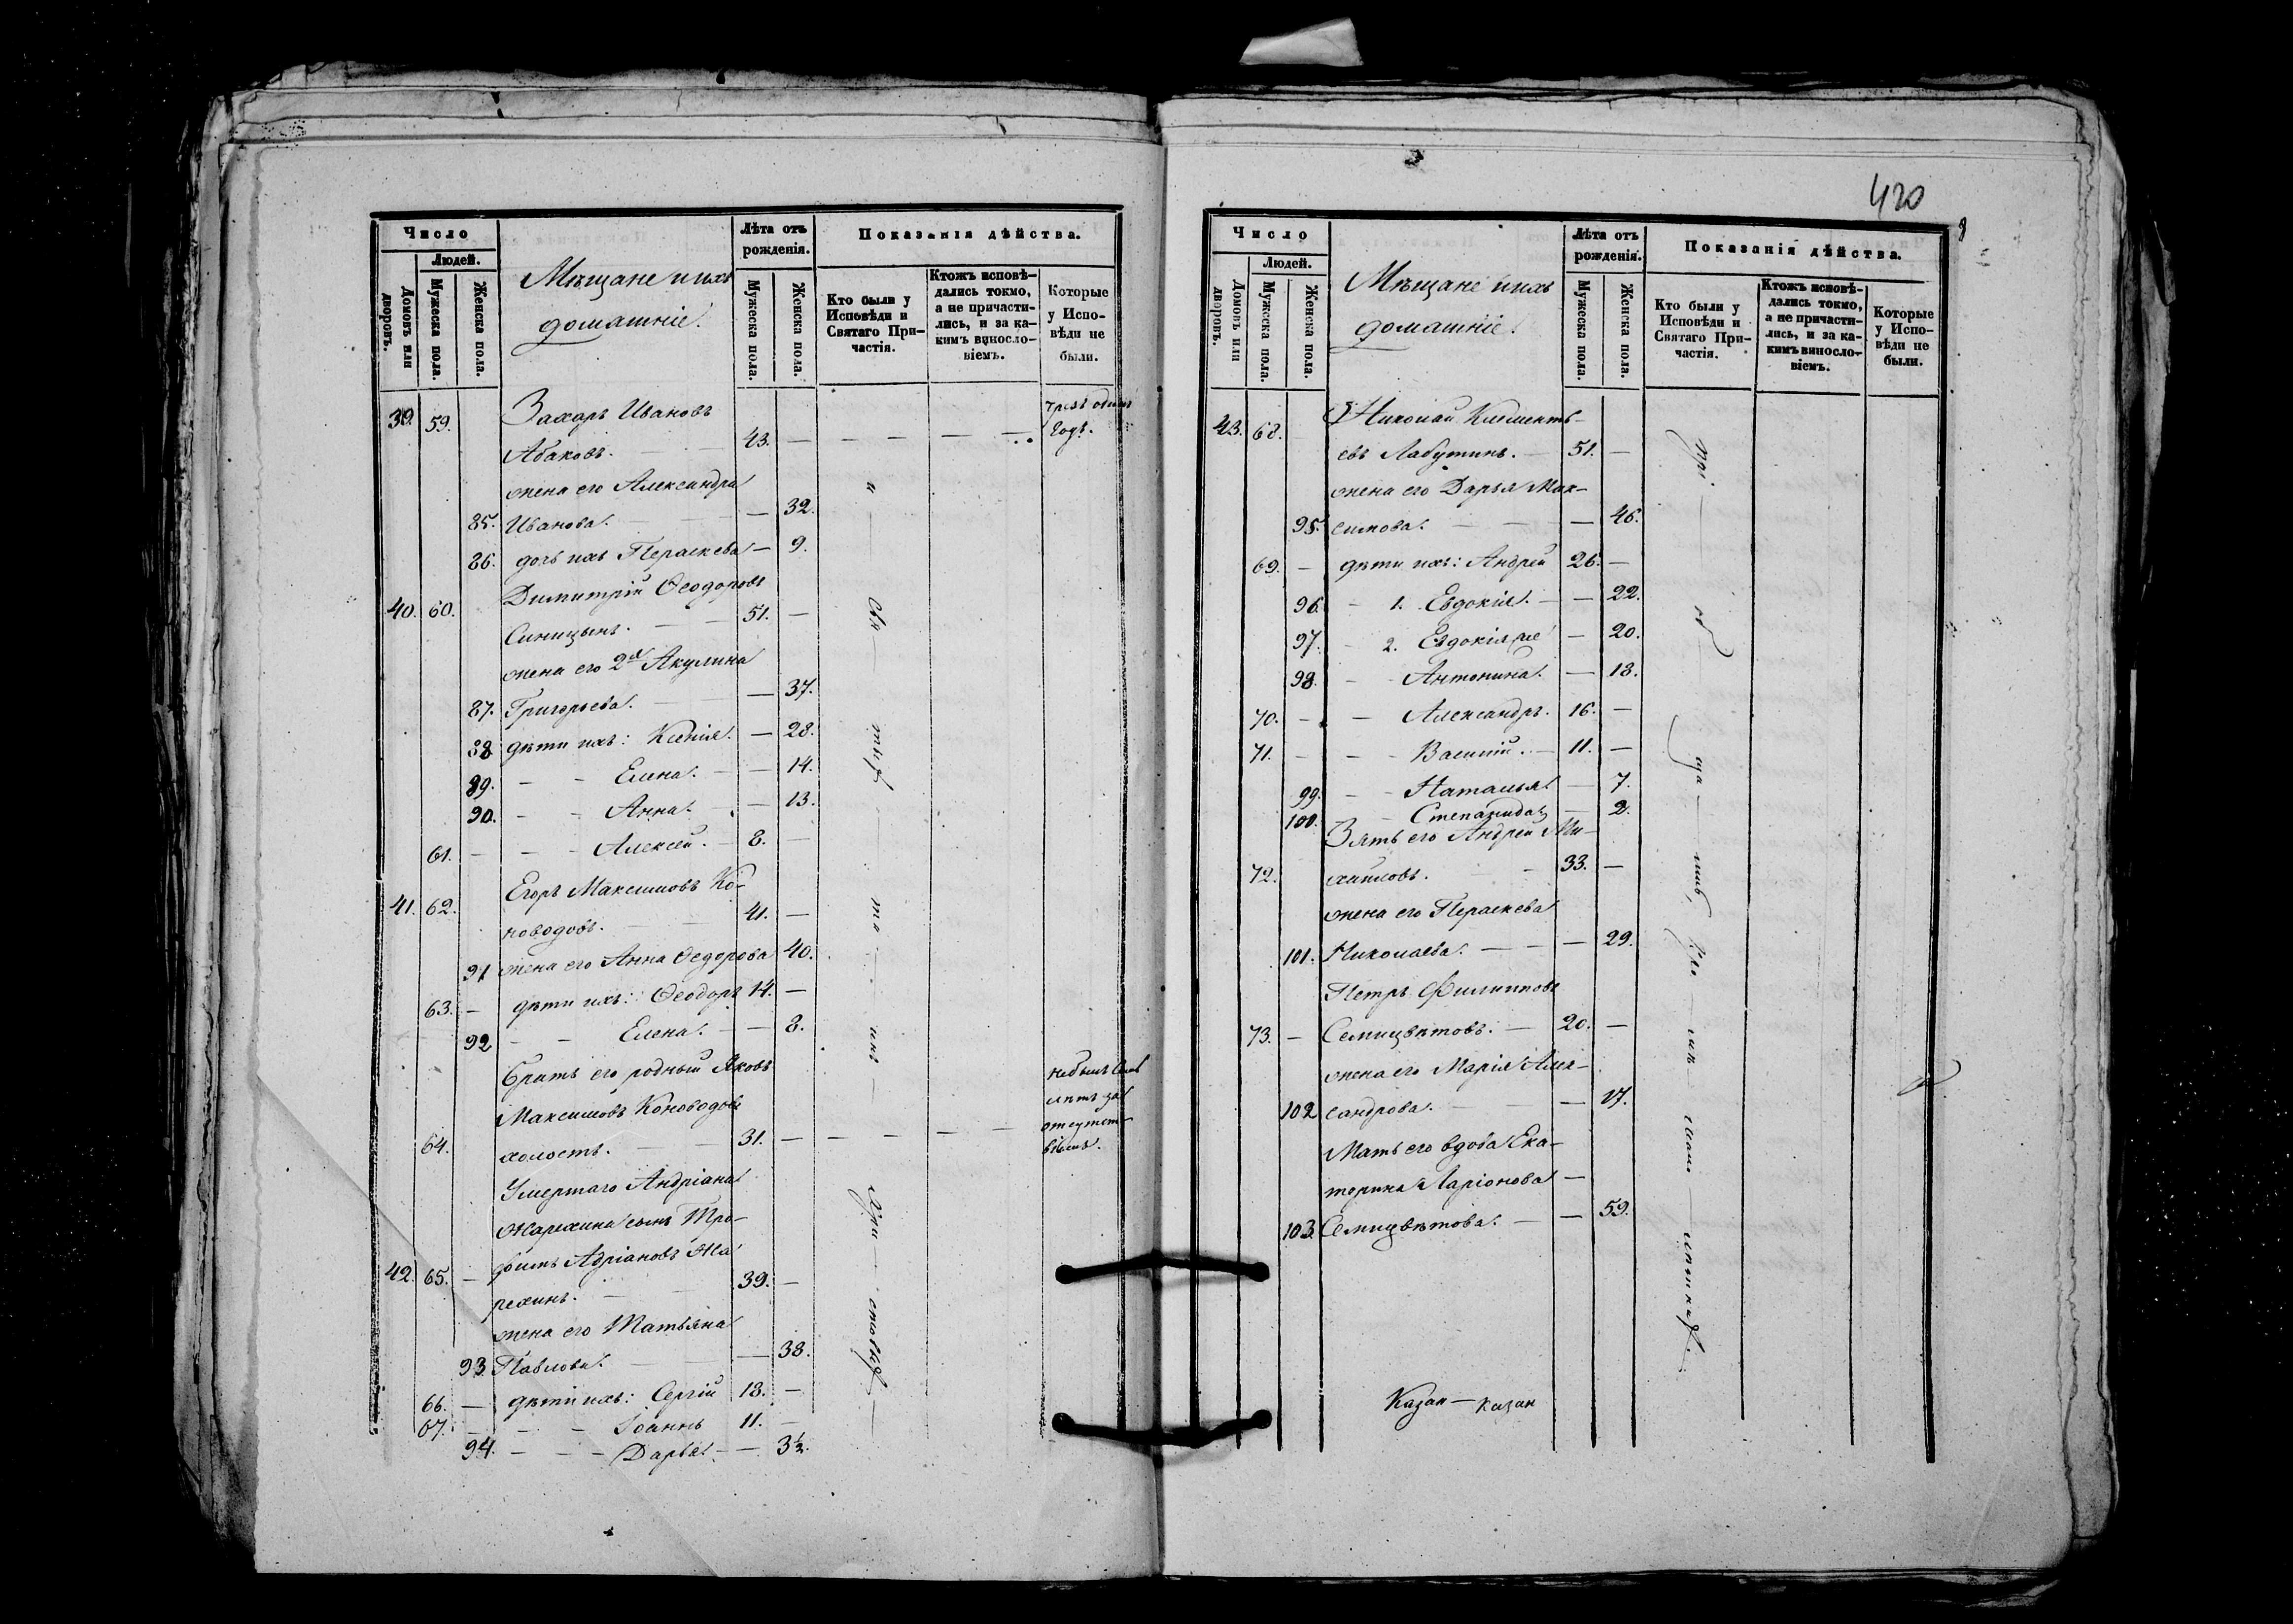 Число
Людей.
Домовъ или дворовъ.
Мужеска пола.
Женска пола.
Мѣщане и ихъ
домашніе.
Лѣта отъ
рожденія.
Мужеска пола.
Женска пола.
Показанія дѣйства.
Кто были у
Исповѣди и
Святаго При-
частія.
Ктожъ исповѣ-
дались токмо,
а не причасти-
лись, и за ка-
кимъ виносло-
віемъ.
Которые
у Испо-
вѣди не
были.
39. 59. Захаръ Ивановъ
Абаковъ. 43. —
чрезъ одинъ
годъ.
жена его Александра
85. Иванова. — 32.
86. дочь ихъ Параскева — 9.
Димитрій Ѳеодоровъ
40. 60. Синицынъ. 51. —
жена его 2я Акулина
87. Григорьева. — 37.
88 дѣти ихъ: Ксенія. — 28.
89. — — Елена. — 14.
90. — — Анна. — 13.
61. — — Алексей. 8. —
Егоръ Максимовъ Ко-
41. 62. новодовъ. 41. —
91 жена его Анна Ѳедорова 40.
63. — дѣти ихъ: Ѳеодоръ 14. —
92 — — Елена. — 8.
братъ его родный Яковъ
Максимовъ Коноводовъ
64. холостъ. 31. —
небылъ семь
лѣтъ за
отсутст-
віемъ.
Умершаго Андріана
Жарехина сынъ Тро-
42. 65. — фимъ Адріановъ Жа
рехинъ. 39. —
жена его Татьяна
93. Павлова. — 38.
66. — дѣти ихъ: Сергій 18. —
67. — — Іоаннъ 11. —
94. — — — Дарья. — 3½.
420
Число
Людей.
Домовъ или дворовъ.
Мужеска пола.
Женска пола.
Мѣщане и ихъ
домашніе.
Лѣта отъ
рожденія.
Мужеска пола.
Женска пола.
Показанія дѣйства.
Кто были у
Исповѣди и
Святаго При-
частія.
Ктожъ исповѣ-
дались токмо,
а не причасти-
лись, и за ка-
кимъ виносло-
віемъ.
Которые
у Испо-
вѣди не
были.
43. 68. Николай Климентъ-
евъ Лабутинъ. 51. —
жена его Дарья Мак-
95. симова. — 46.
69. — дѣти ихъ: Андрей 26. —
96. — 1. Евдокія. — 22.
97. — 2. Евдокія же — 20.
98. — Антонина. — 18.
70. — — Александръ. 16. —
71. — — Василій. 11. —
99. — — Наталья — 7.
100. Степанида — 2.
Зять его Андрей Ми-
72. хайловъ. 33. —
жена его Параскева
101. Николаева. — 29.
Петръ Филипповъ
73. — Семицвѣтовъ. 20. —
жена его Марія Алек-
102 сандрова. — 17.
Мать его вдова Ека-
терина Ларіонова —
103. Семицвѣтова. — 59.
Казан — казан